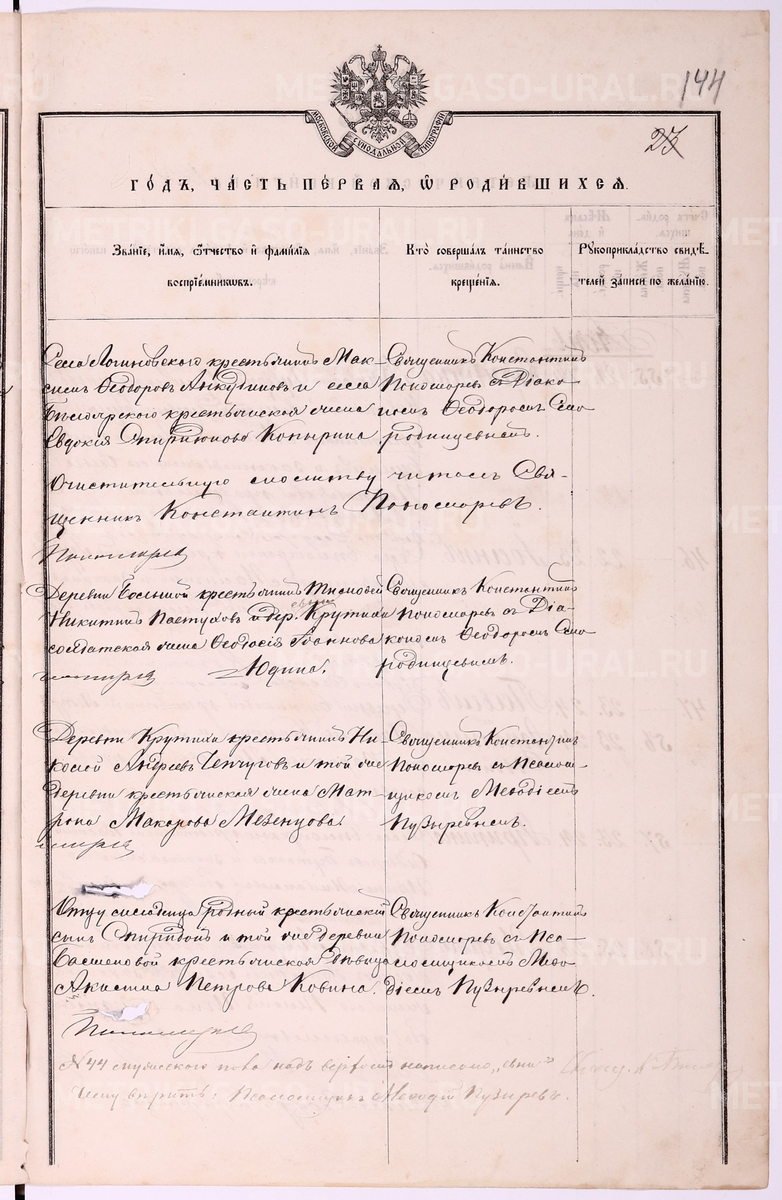 144
23
МОСКОВСКОЙ СУНОДАЛЬНОЙ ТИПОГРАФІИ
ГОДЪ, ЧАСТЬ ПЕРВАЯ, Ѿ РОДИВШИХСЯ.
Званіе, имя, ѻтчество и фамилія воспріемникѡвъ.
Кто совершалъ таинство крещенія.
Рукоприкладство свидѣтелей записи по желанію.
Села Логиновскаго крестьянинъ Мак-
симъ Ѳеодоровъ Анкудиновъ и села
Бѣлоярскаго крестьянская жена
Евдокія Спиридонова Копырина
Священникъ Константинъ
Пономаревъ съ Діако-
номъ Ѳеодоромъ Смо-
родинцевымъ.
Очистительную молитву читалъ Свя-
щенникъ Константинъ Пономаревъ.
Деревни Большой крестьянинъ Тимоѳей
Никитинъ Пастуховъ и дер. Крутихи
солдатская жена Ѳеодосія Іоаннова
Юдина.
Священникъ Константинъ
Пономаревъ съ Діа-
кономъ Ѳеодоромъ Смо-
родинцевымъ.
Деревни Крутихи крестьянинъ Ни-
колай Андреевъ Чепчуговъ и той же
деревни крестьянская жена Мат-
рона Макарова Мезенцова
Священникъ Константинъ
Пономаревъ съ Псалом-
щикомъ Меѳодіемъ
Пузыревымъ.
Отцу младенца родный крестьянскій
сынъ Спиридонъ и той же деревни
крестьянская дѣвица
Акилина Петрова Ковина.
Священникъ Константинъ
Пономаревъ съ Пса-
ломщикомъ Меѳо-
діемъ Пузыревымъ.
N 44 мужескаго пола надъ верхомъ написано „
вѣрить: Псаломщикъ Меѳодій Пузыревъ.